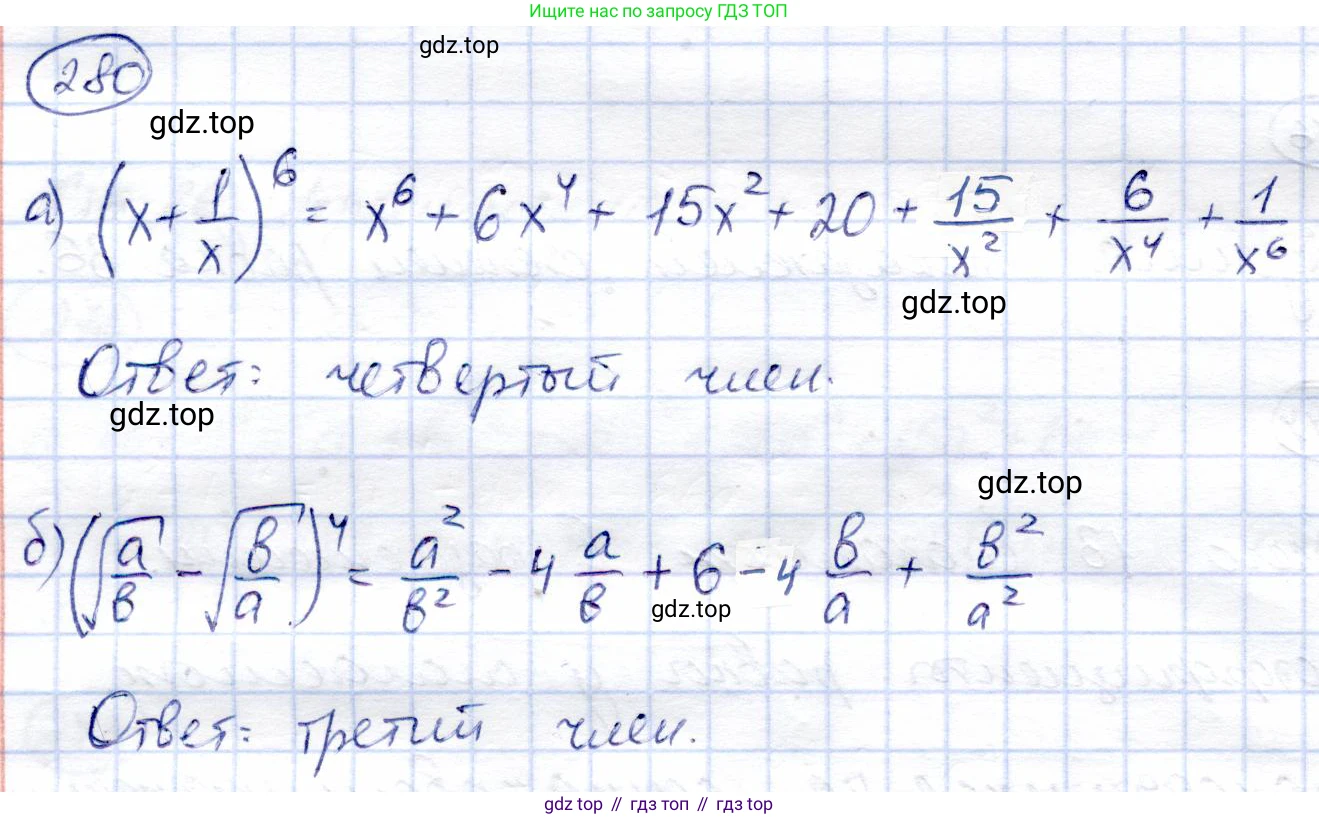 Ищите нас по запросу ГДЗ ТОП
gdz.top
280
gdz.top
а) (x + 1/x)^6 = x^6 + 6x^4 + 15x^2 + 20 + 15/x^2 + 6/x^4 + 1/x^6
gdz.top
Ответ: четвертый член.
gdz.top
gdz.top
б) (√(a/b) - √(b/a))^4 = a^2/b^2 - 4 a/b + 6 - 4 b/a + b^2/a^2
gdz.top
Ответ: третий член.
gdz top // гдз топ // gdz.top